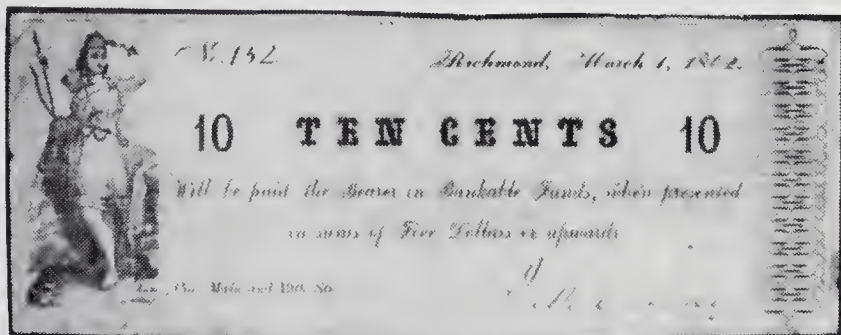 No. 152 Richmond, March 1, 1862.
10 TEN CENTS 10
Will be paid the Bearer in Bankable Funds, when presented
in sums of Five Dollars or upwards
Main and 19th Sts.